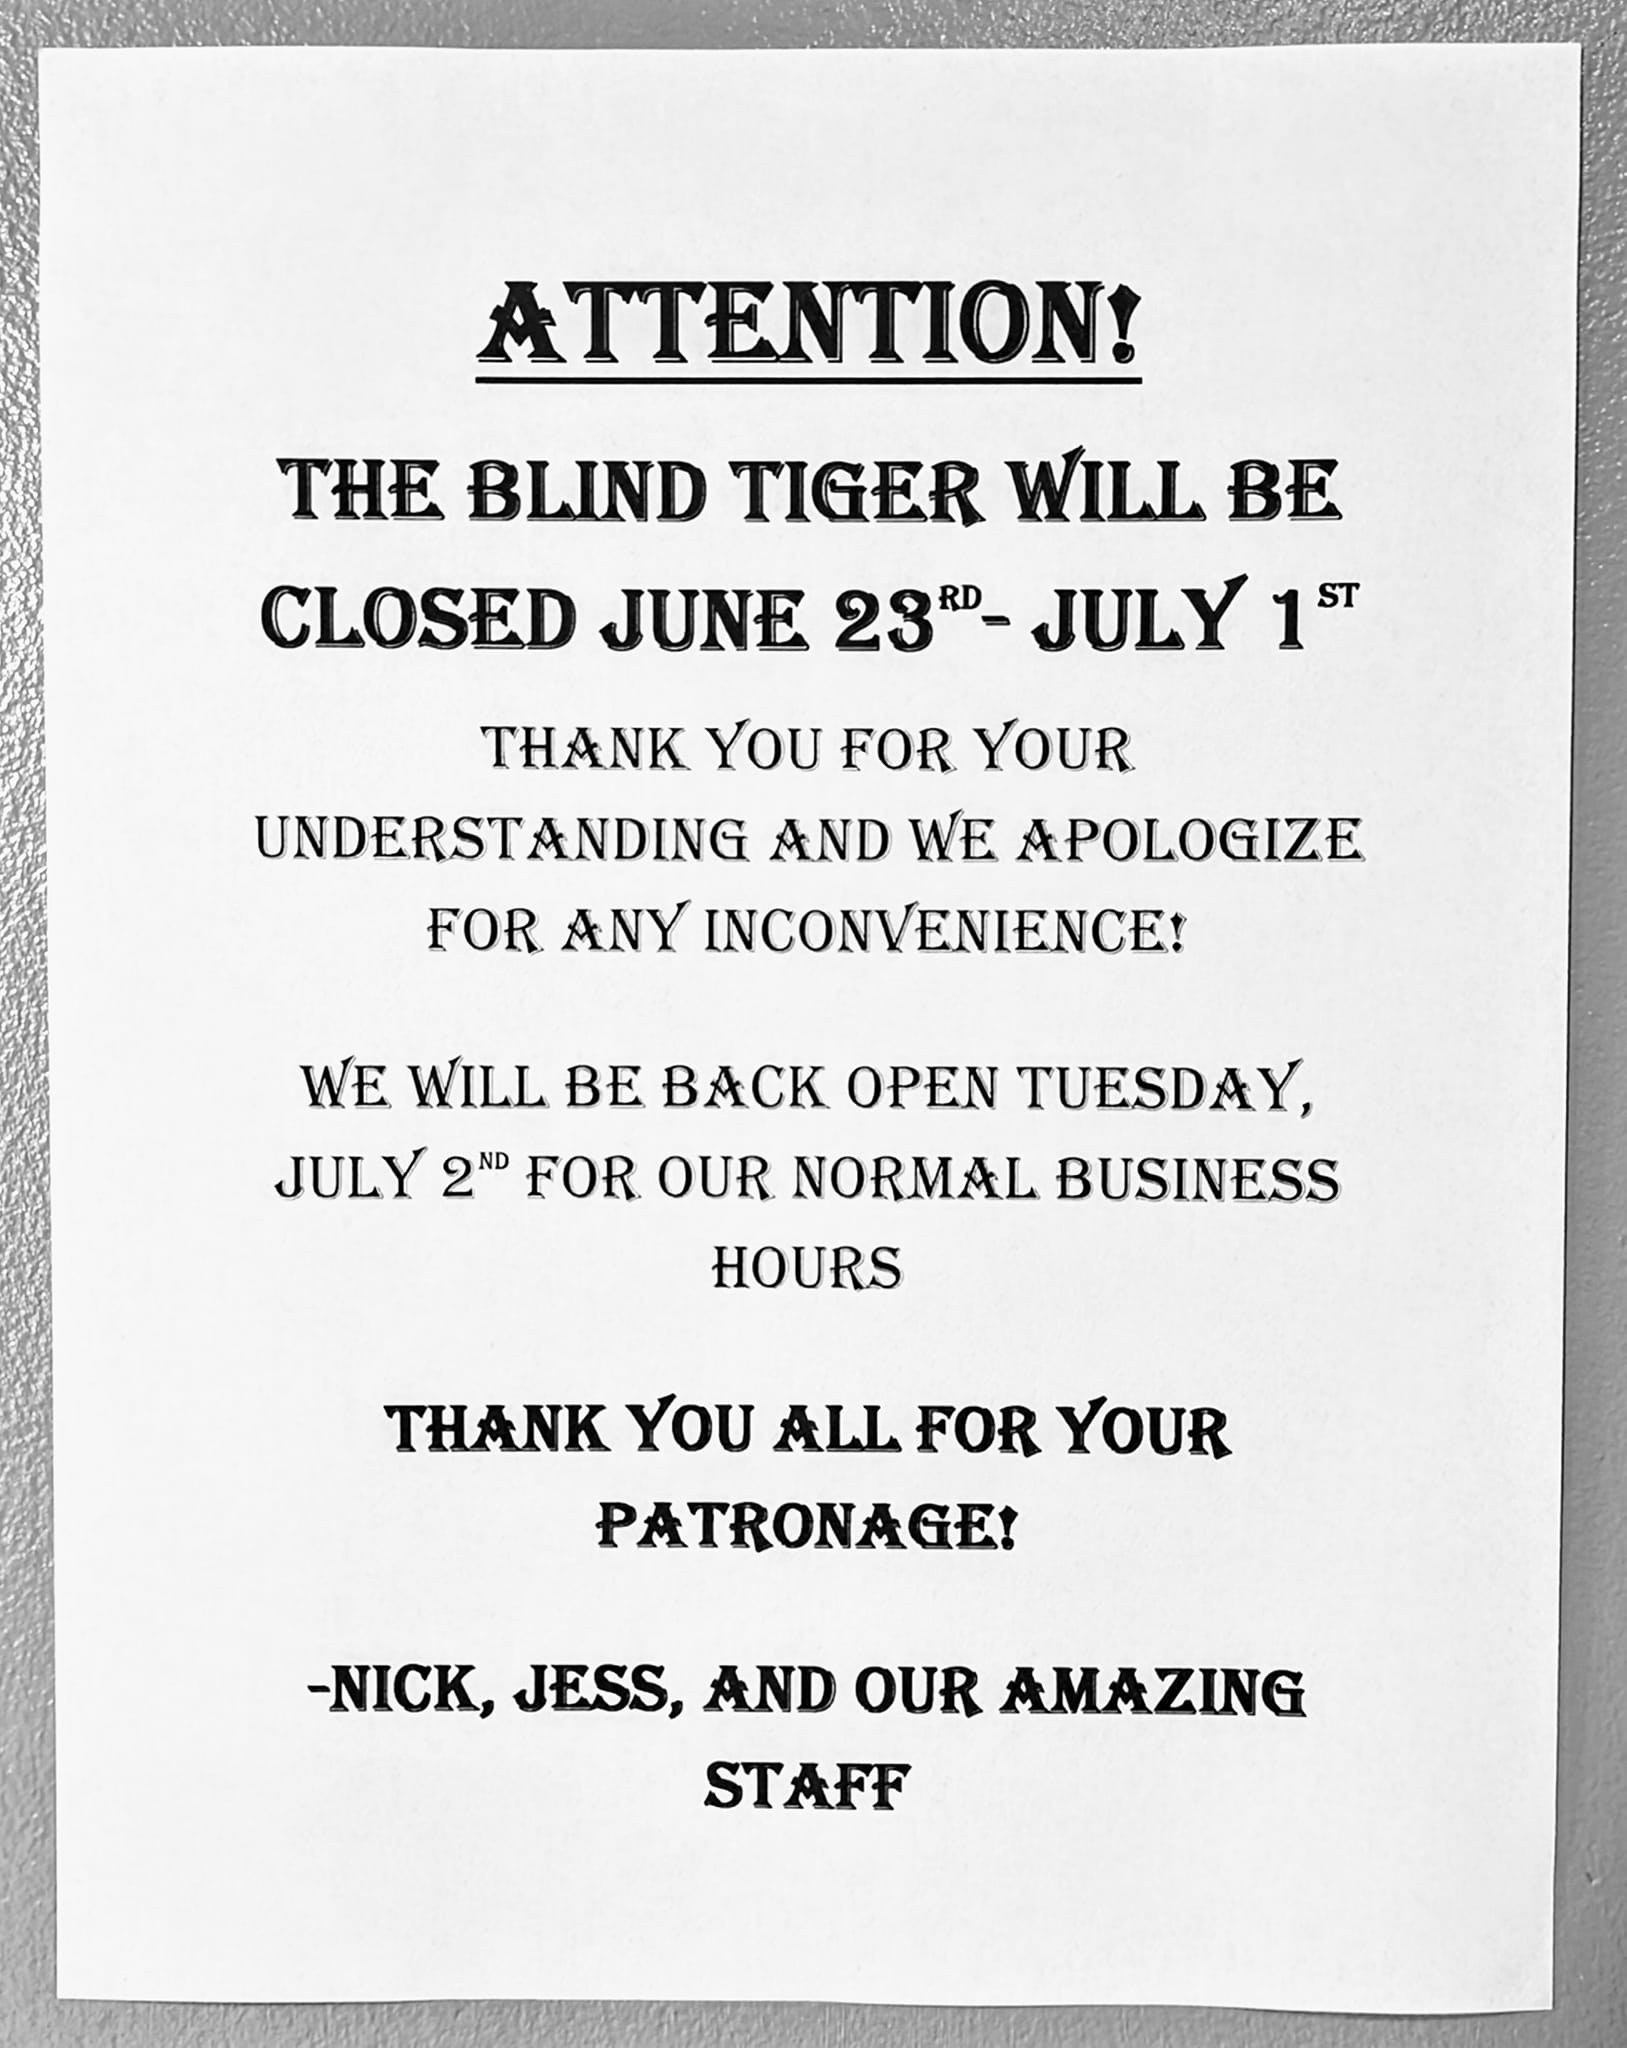 ATTENTION!
THE BLIND TIGER WILL BE
CLOSED JUNE 23RD- JULY 1ST
THANK YOU FOR YOUR
UNDERSTANDING AND WE APOLOGIZE
FOR ANY INCONVENIENCE!
WE WILL BE BACK OPEN TUESDAY,
JULY 2ND FOR OUR NORMAL BUSINESS
HOURS
THANK YOU ALL FOR YOUR
PATRONAGE!
-NICK, JESS, AND OUR AMAZING
STAFF